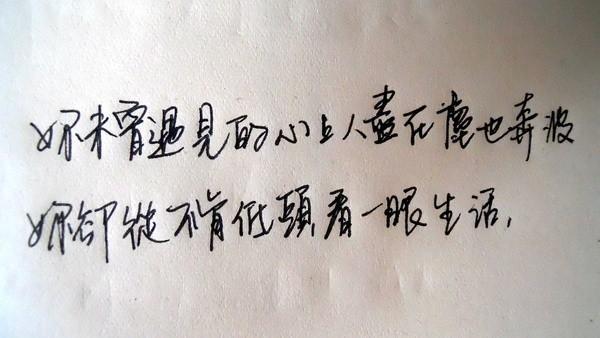 妳未曾遇見的小丑人盡在塵世奔波
妳卻從不肯低頭看一眼生活,